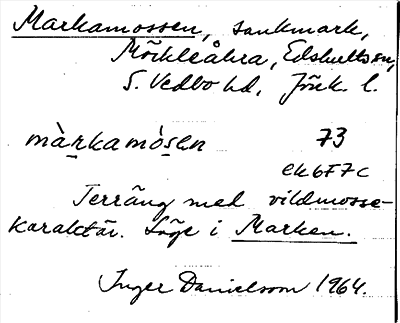 Markamossen, sankmark,
Möckleåkra, Edshults sn,
S. Vedbo hd, Jönk. l.
màrkamòsen 73
ek 6F7c
Terräng med vildmosse-
karaktär. Läge i Marken.
Inger Danielsson 1964.